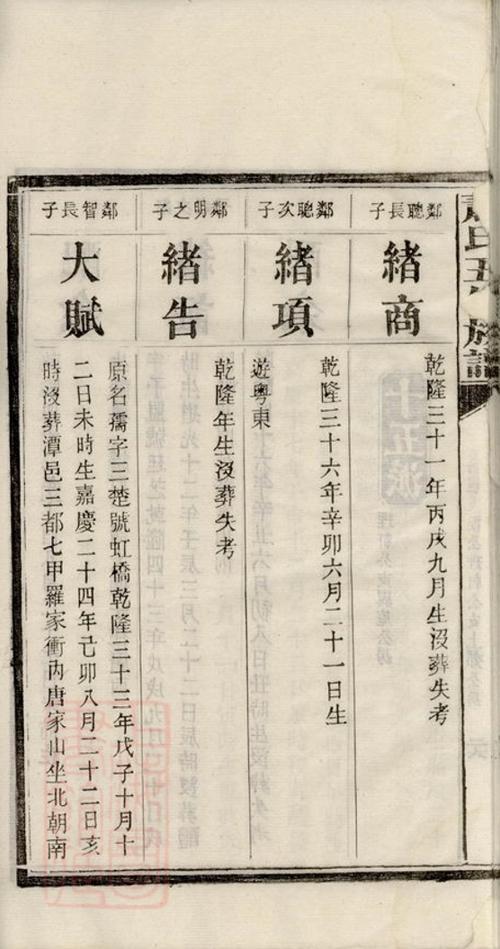 氏五 族譜
鄰聰長子
緒商
乾隆三十一年丙戌九月生沒葬失考
鄰聰次子
緒項
乾隆三十六年辛卯六月二十一日生
遊粵東
鄰明之子
緒告
乾隆年生沒葬失考
鄰智長子
大賦
原名孺字三楚號虹橋乾隆三十三年戊子十月十
二日未時生嘉慶二十四年己卯八月二十二日亥
時沒葬潭邑三都七甲羅家衝內唐家山坐北朝南